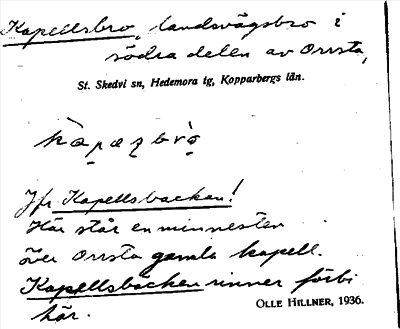 Kapellsbro, landsvägsbro i
södra delen av Orrsta,
St. Skedvi sn, Hedemora tg, Kopparbergs län.
Jfr Kapellsbacken!
Här står en minnesten
över Orrsta gamla kapell.
Kapellsbäcken rinner förbi
här.
OLLE HILLNER, 1936.